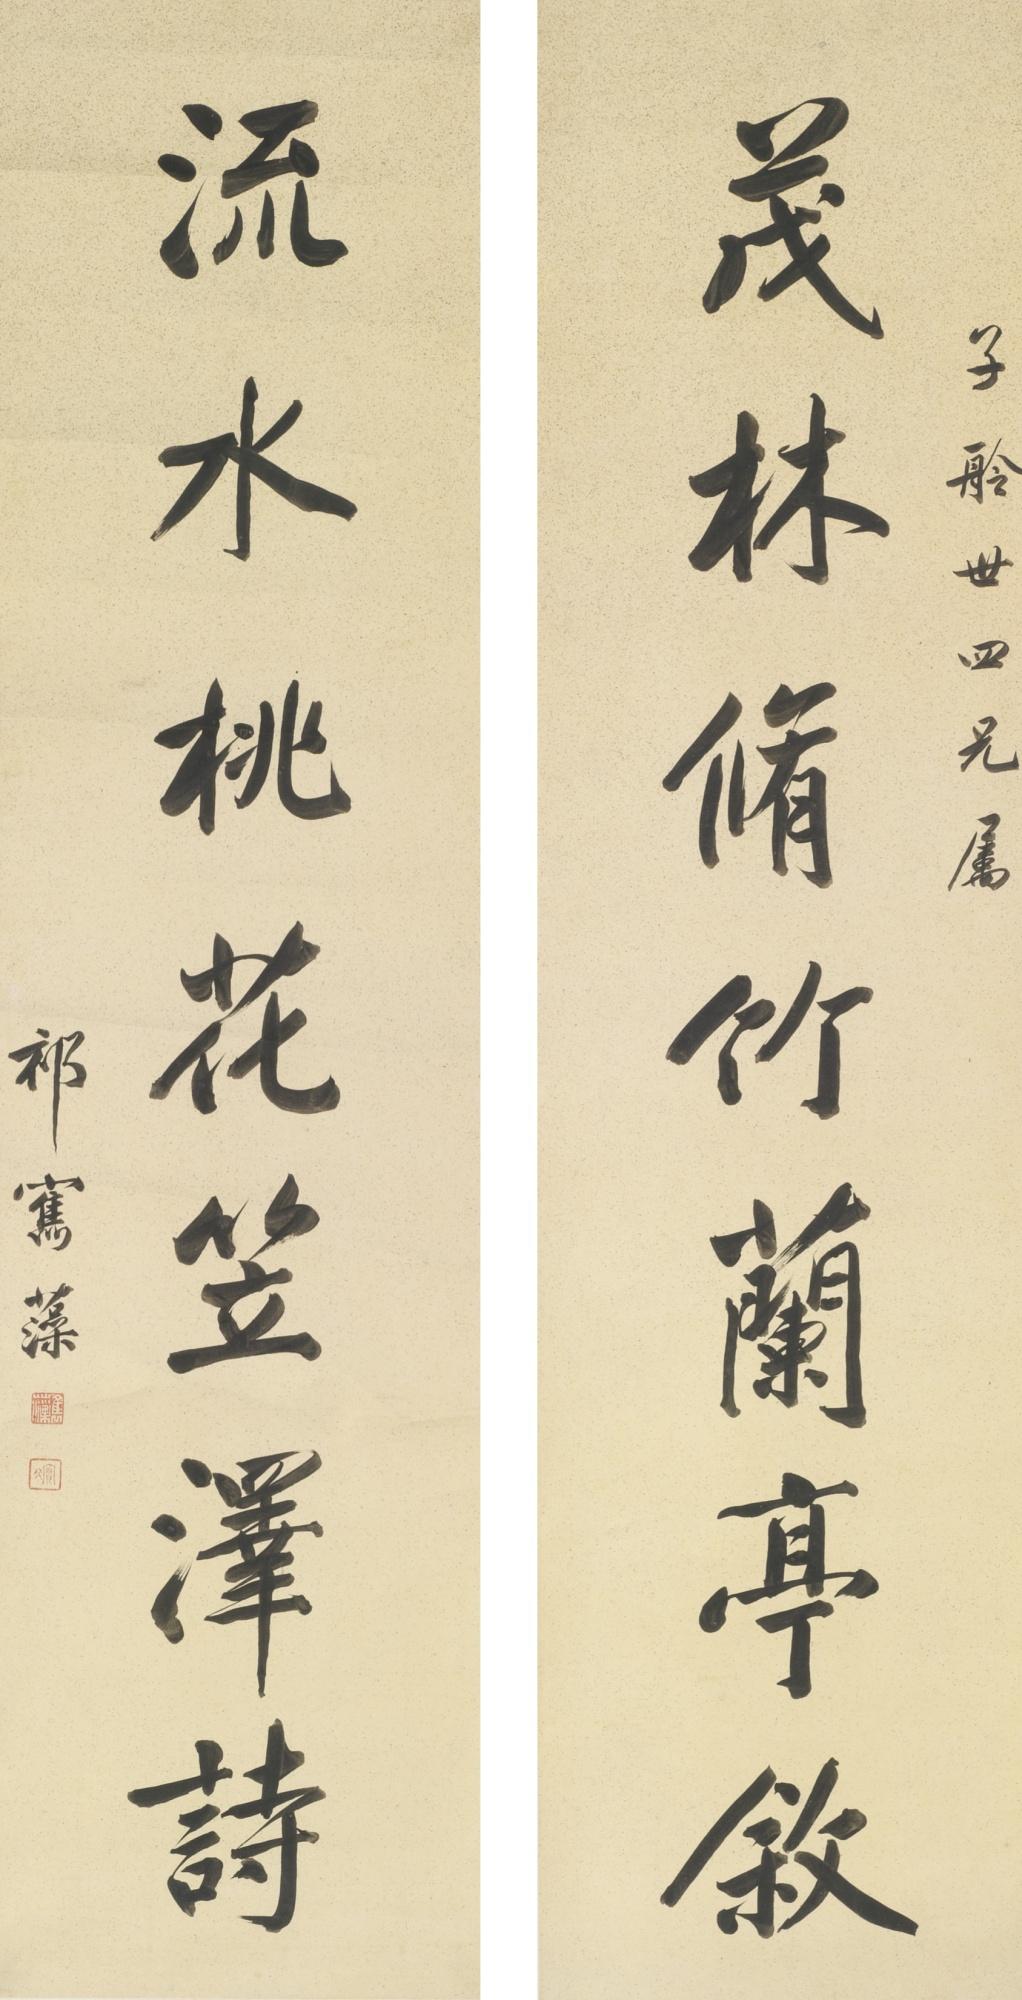 子舲世四兄属
茂林脩竹蘭亭敘
流水桃花笠澤詩
祁寯藻